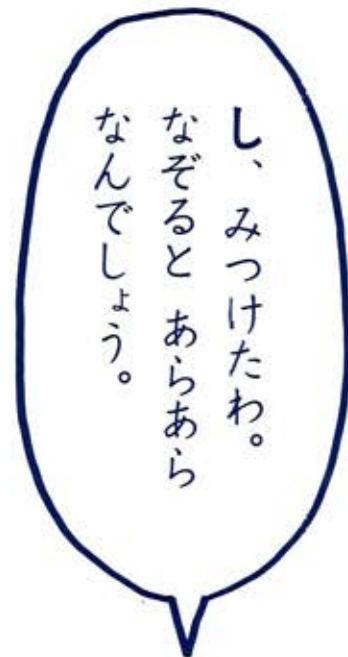 し、みつけたわ。
なぞると あらあら
なんでしょう。